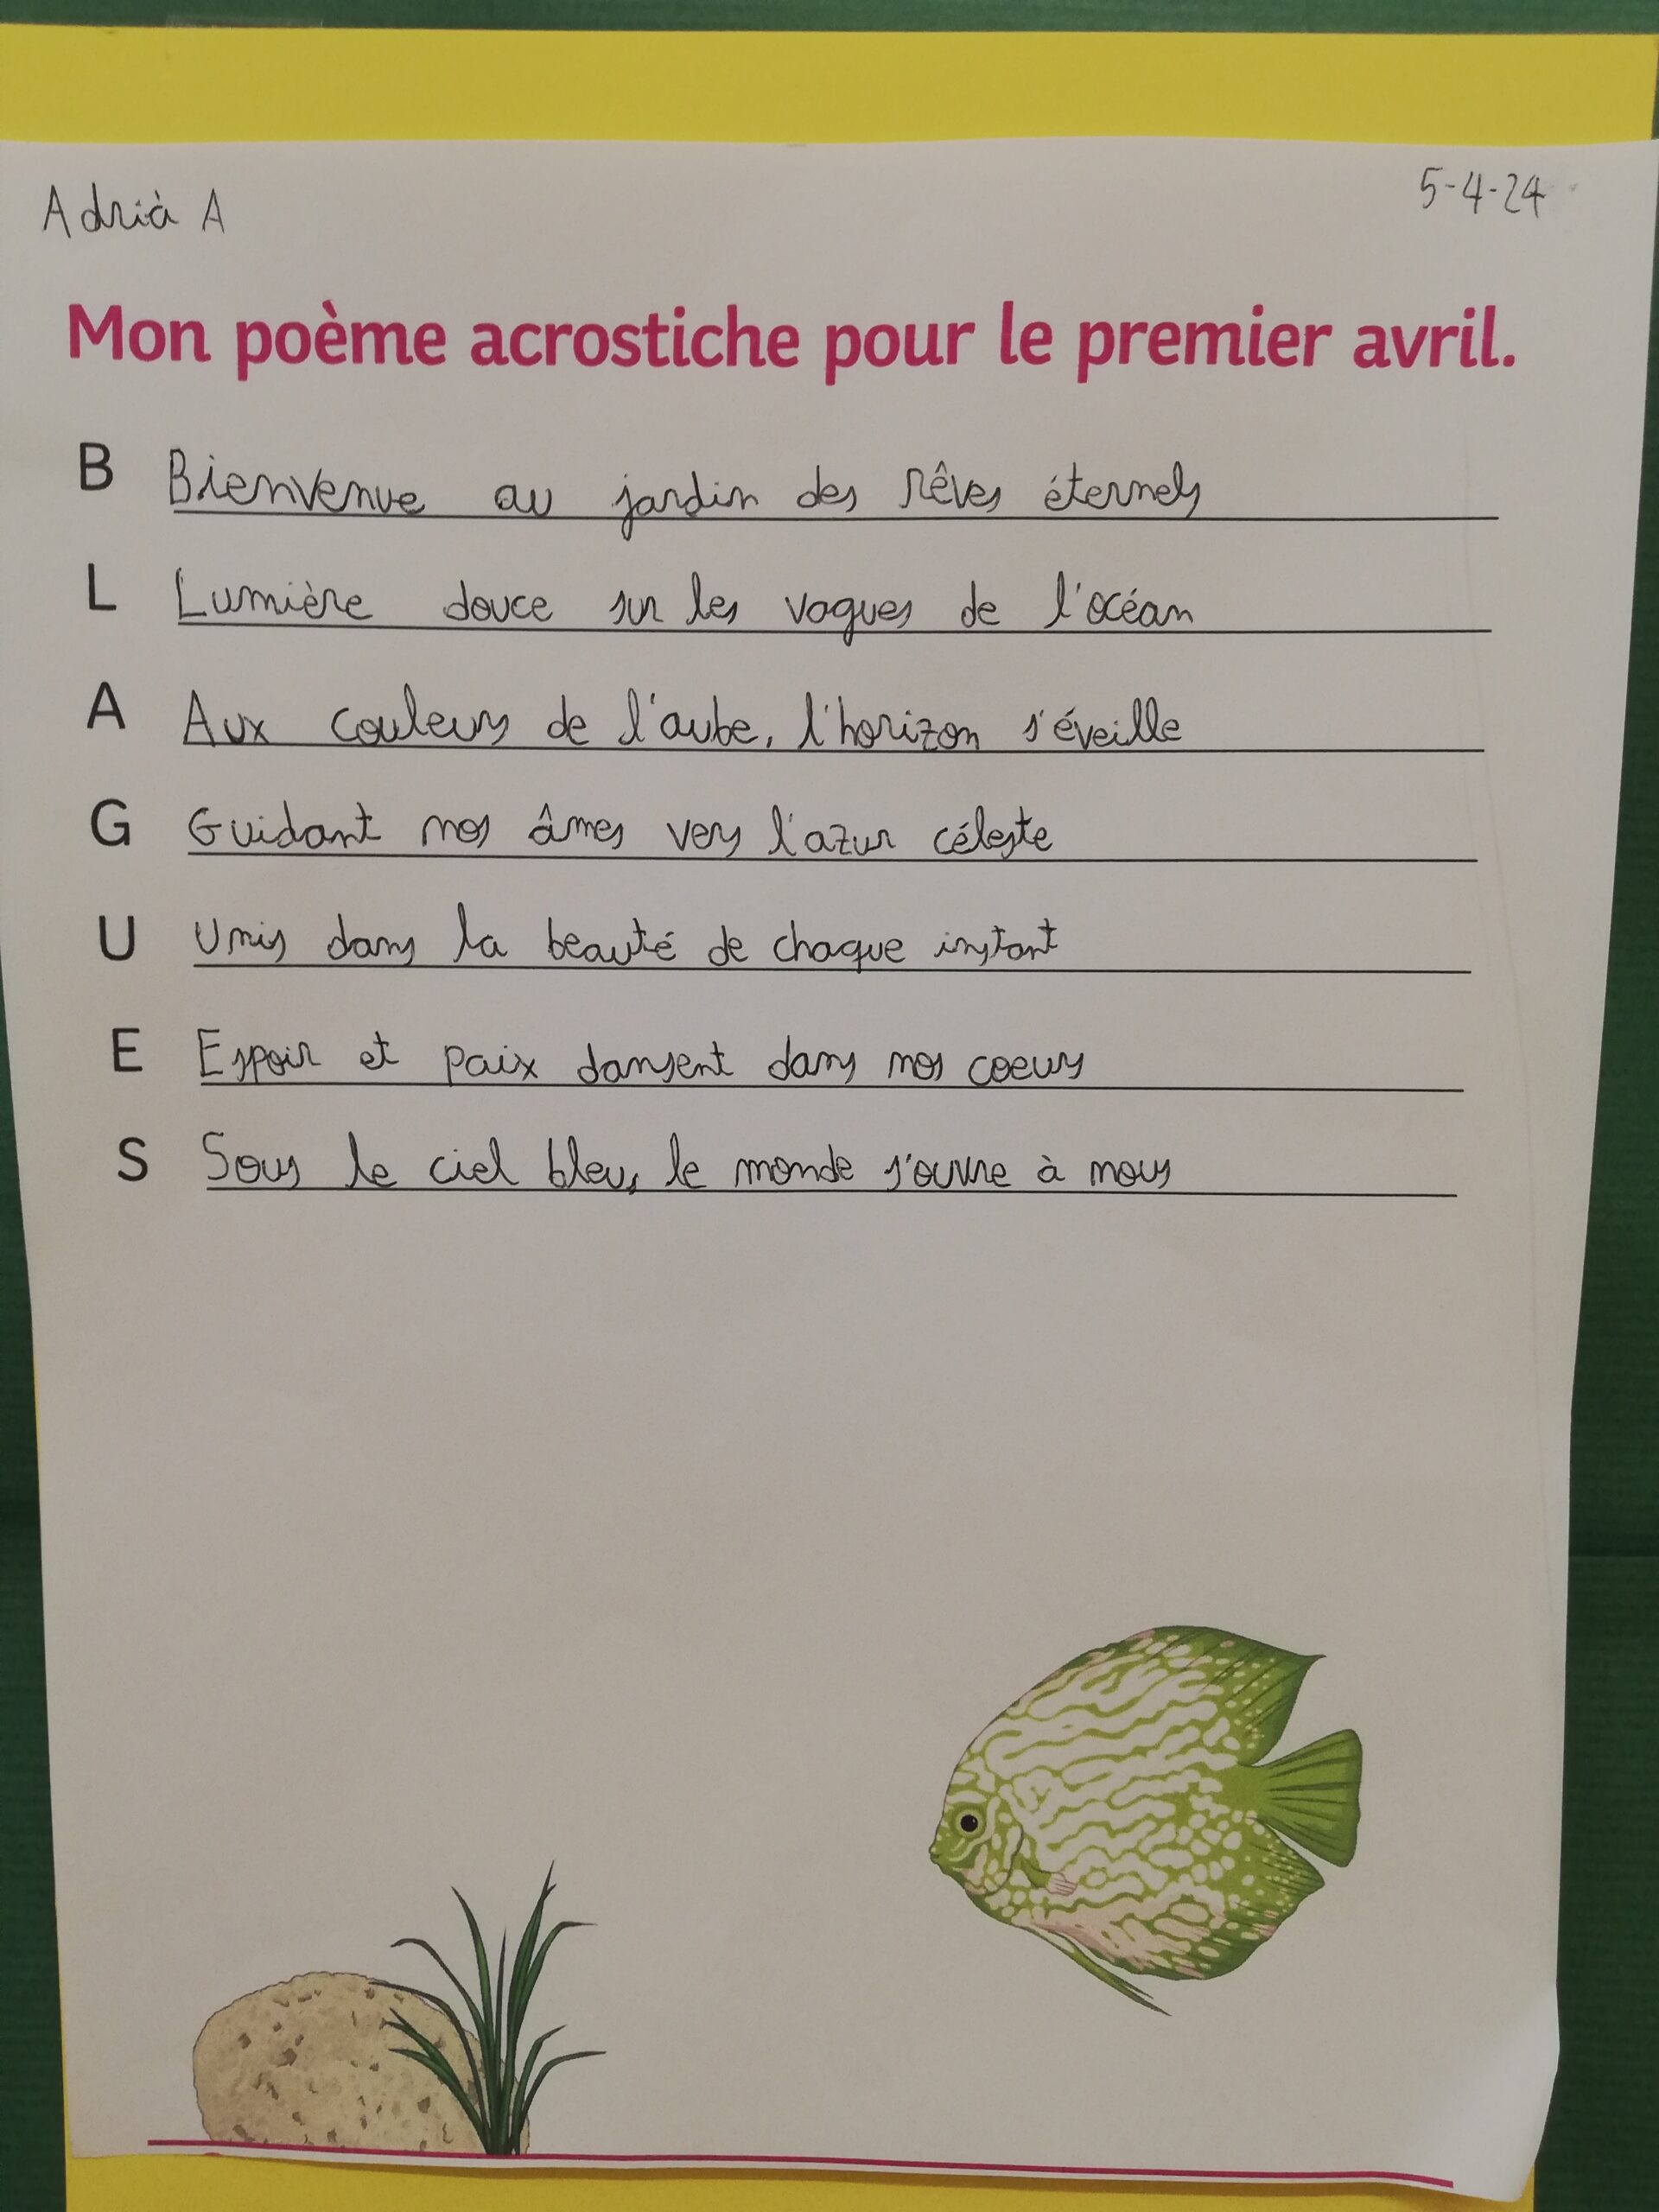 Adrià A 5-4-24
Mon poème acrostiche pour le premier avril.
B Bienvenue au jardin des rêves éternels
L Lumière douce sur les vagues de l'océan
A Aux couleurs de l'aube, l'horizon s'éveille
G Guidant nos âmes vers l'azur céleste
U Unis dans la beauté de chaque instant
E Espoir et paix dansent dans nos coeurs
S Sous le ciel bleu, le monde s'ouvre à nous